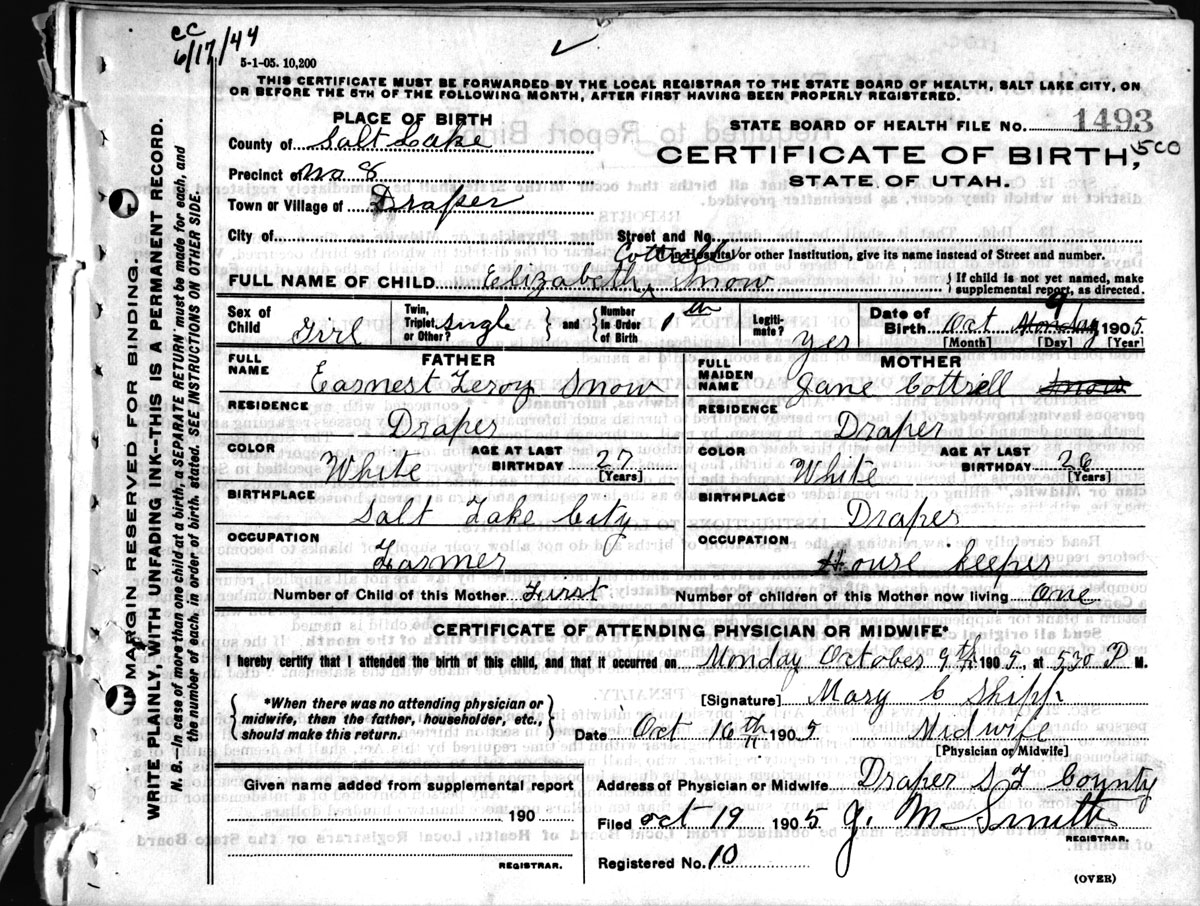 cc
6/17/44
5-1-05. 10,200
THIS CERTIFICATE MUST BE FORWARDED BY THE LOCAL REGISTRAR TO THE STATE BOARD OF HEALTH, SALT LAKE CITY, ON
OR BEFORE THE 5TH OF THE FOLLOWING MONTH, AFTER FIRST HAVING BEEN PROPERLY REGISTERED.
PLACE OF BIRTH
County of Salt Lake
Precinct of No 8
Town or Village of Draper
City of
STATE BOARD OF HEALTH FILE NO. 1493
500
CERTIFICATE OF BIRTH,
STATE OF UTAH.
Street and No.
If in Hospital or other Institution, give its name instead of Street and number.
FULL NAME OF CHILD Elizabeth Cottrell Snow { If child is not yet named, make supplemental report, as directed.
Sex of Child Girl
Twin, Triplet, or Other? single } and { Number in Order of Birth 1st
Legitimate? yes
Date of Birth Oct 9 1905.
[Month] [Day] [Year]
FATHER
FULL NAME Earnest Leroy Snow
RESIDENCE Draper
COLOR White AGE AT LAST BIRTHDAY 27
[Years]
BIRTHPLACE Salt Lake City
OCCUPATION Farmer
MOTHER
FULL MAIDEN NAME Jane Cottrell
RESIDENCE Draper
COLOR White AGE AT LAST BIRTHDAY 26
[Years]
BIRTHPLACE Draper
OCCUPATION House keeper
Number of Child of this Mother First Number of children of this Mother now living One
CERTIFICATE OF ATTENDING PHYSICIAN OR MIDWIFE*
I hereby certify that I attended the birth of this child, and that it occurred on Monday October 9th 1905, at 530 P M.
{ *When there was no attending physician or midwife, then the father, householder, etc., should make this return. }
[Signature] Mary C Shipp
Date Oct 16th 1905 Midwife
[Physician or Midwife]
Given name added from supplemental report
190
REGISTRAR.
Address of Physician or Midwife Draper S L County
Filed Oct 19 1905. J. M Smith
REGISTRAR.
Registered No. 10
(OVER)
MARGIN RESERVED FOR BINDING.
WRITE PLAINLY, WITH UNFADING INK--THIS IS A PERMANENT RECORD.
N. B.--In case of more than one child at a birth, a SEPARATE RETURN must be made for each, and
the number of each, in order of birth, stated. SEE INSTRUCTIONS ON OTHER SIDE.